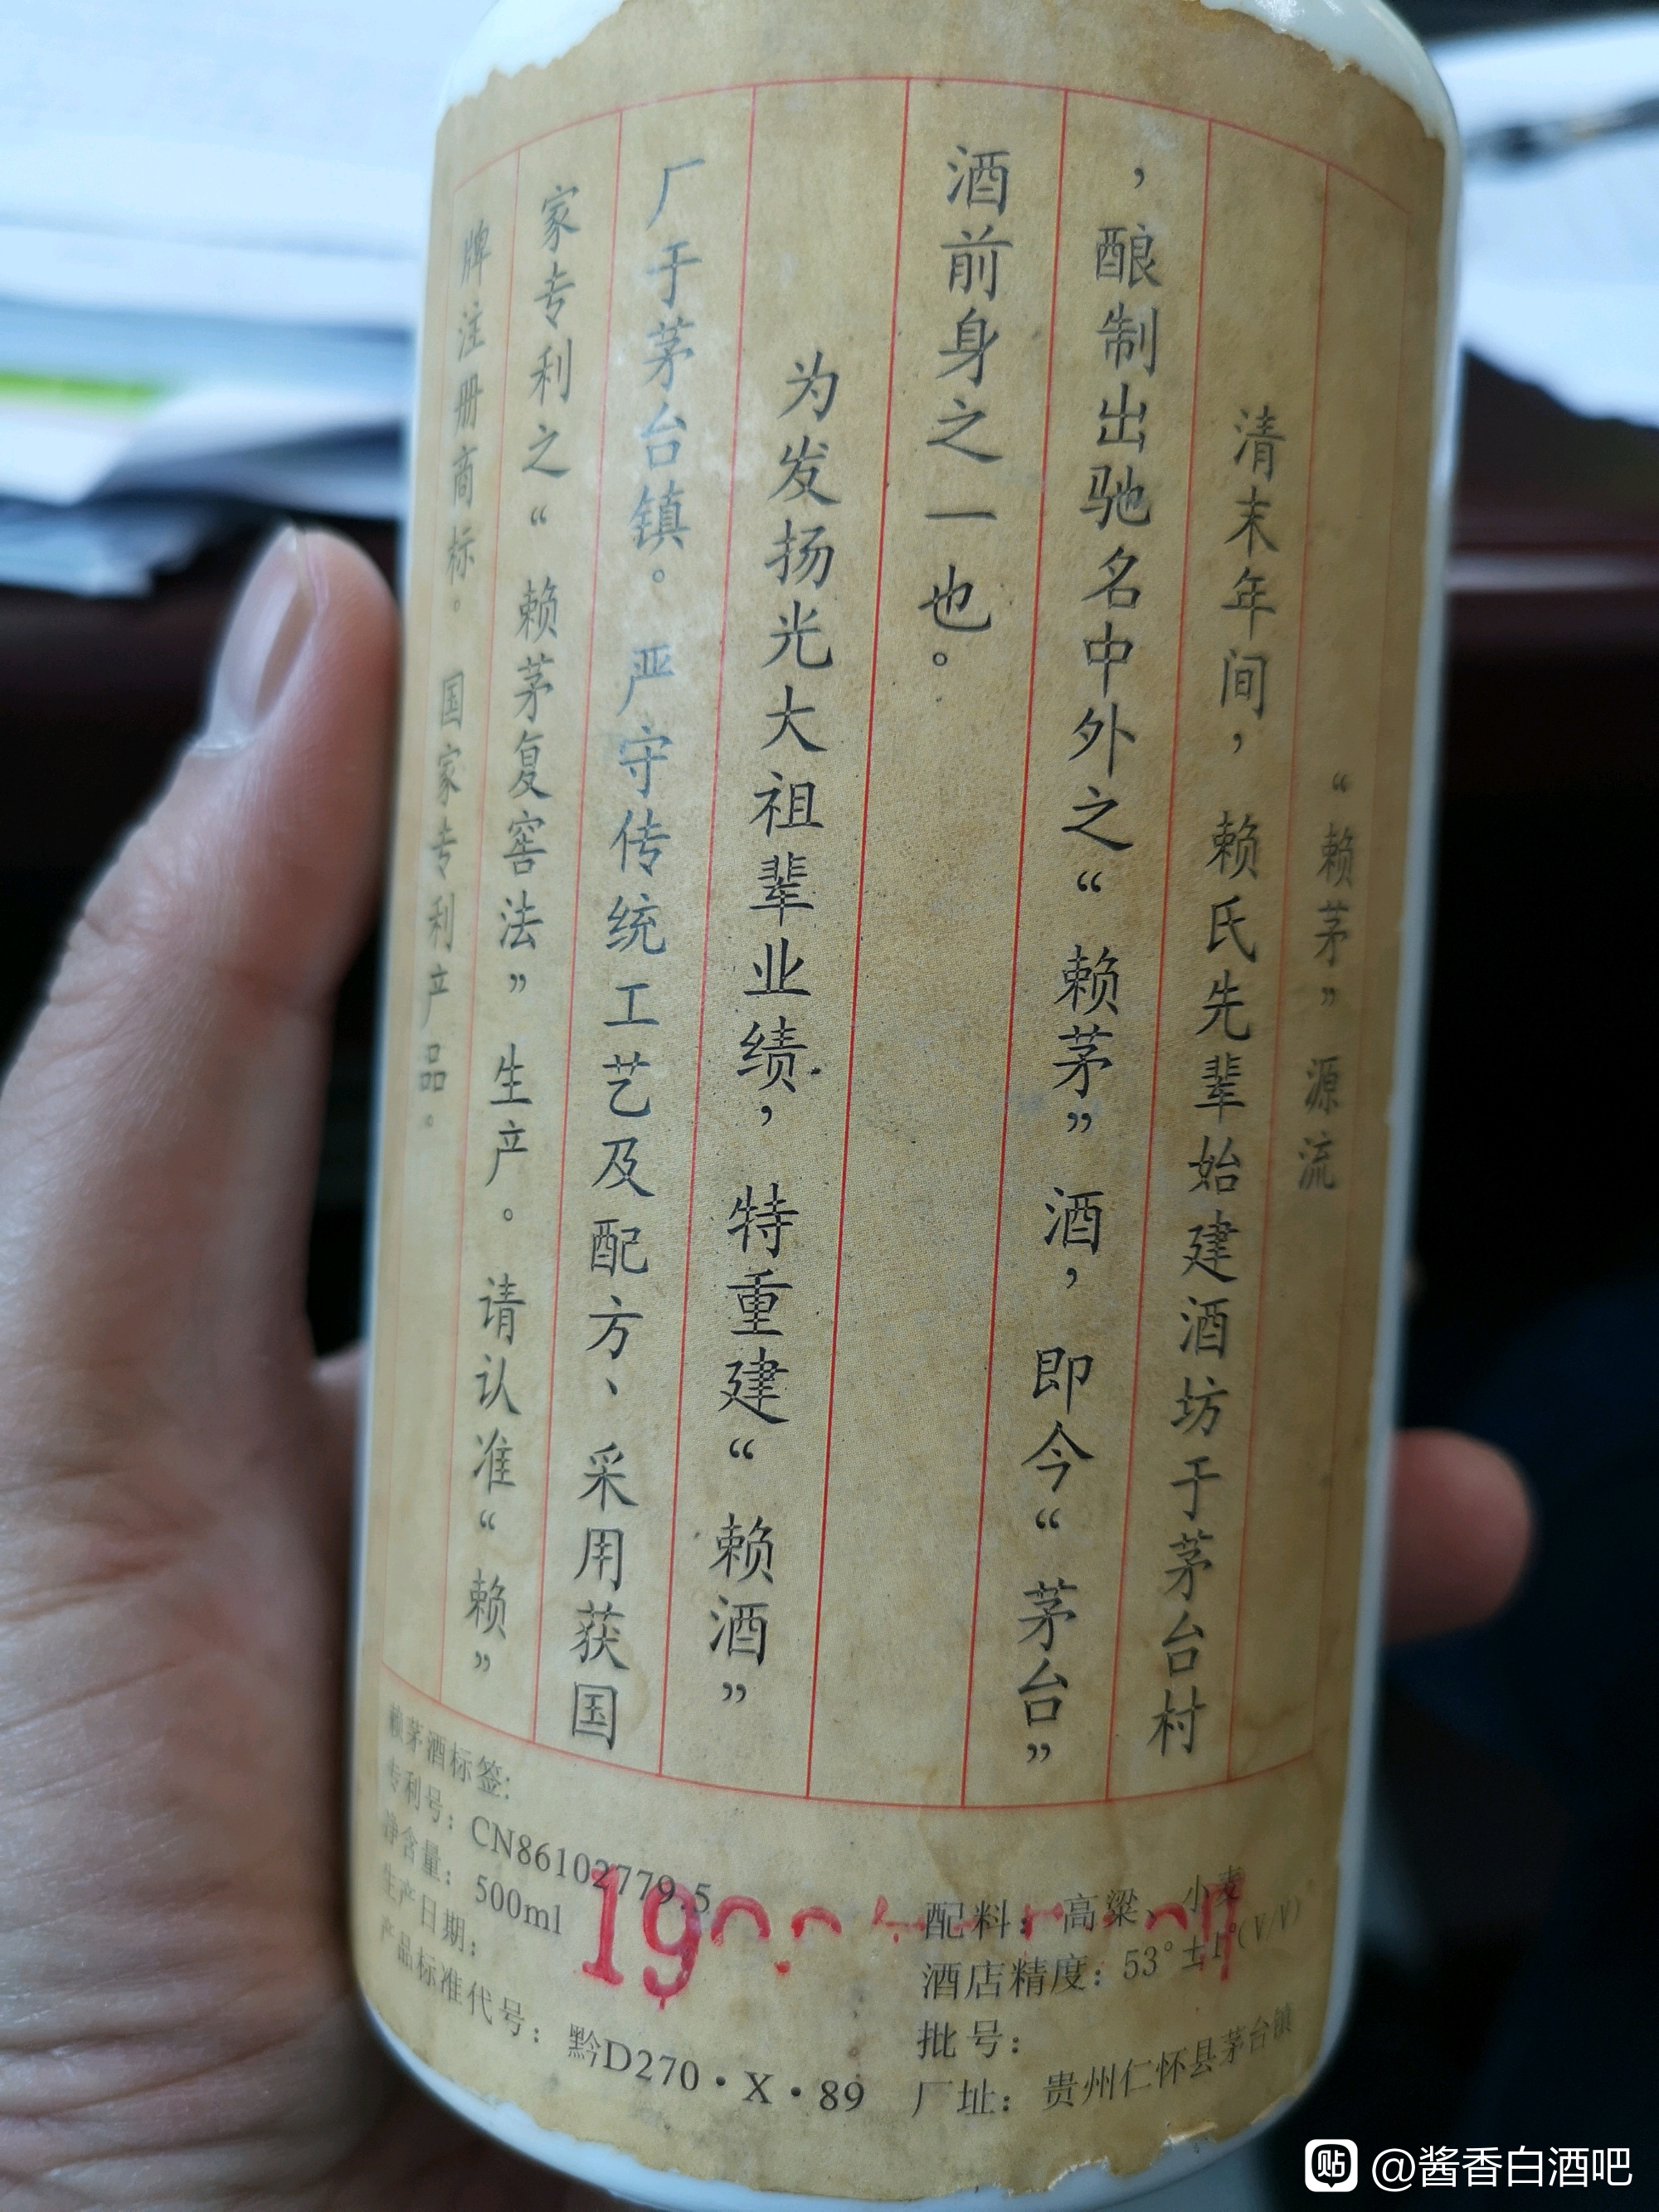 “赖茅”源流
清末年间，赖氏先辈始建酒坊于茅台村
，酿制出驰名中外之“赖茅”酒，即今“茅台”
酒前身之一也。
为发扬光大祖辈业绩，特重建“赖酒”
厂于茅台镇。严守传统工艺及配方、采用获国
家专利之“赖茅复窖法”生产。请认准“赖”
牌注册商标。国家专利产品。
赖茅酒标签:
专利号：CN86102779.5
净含量：500ml
生产日期：
产品标准代号：黔D270·X·89
配料：高粱、小麦
酒店精度：53°±1°(V/V)
批号：
厂址：贵州仁怀县茅台镇
贴 @酱香白酒吧